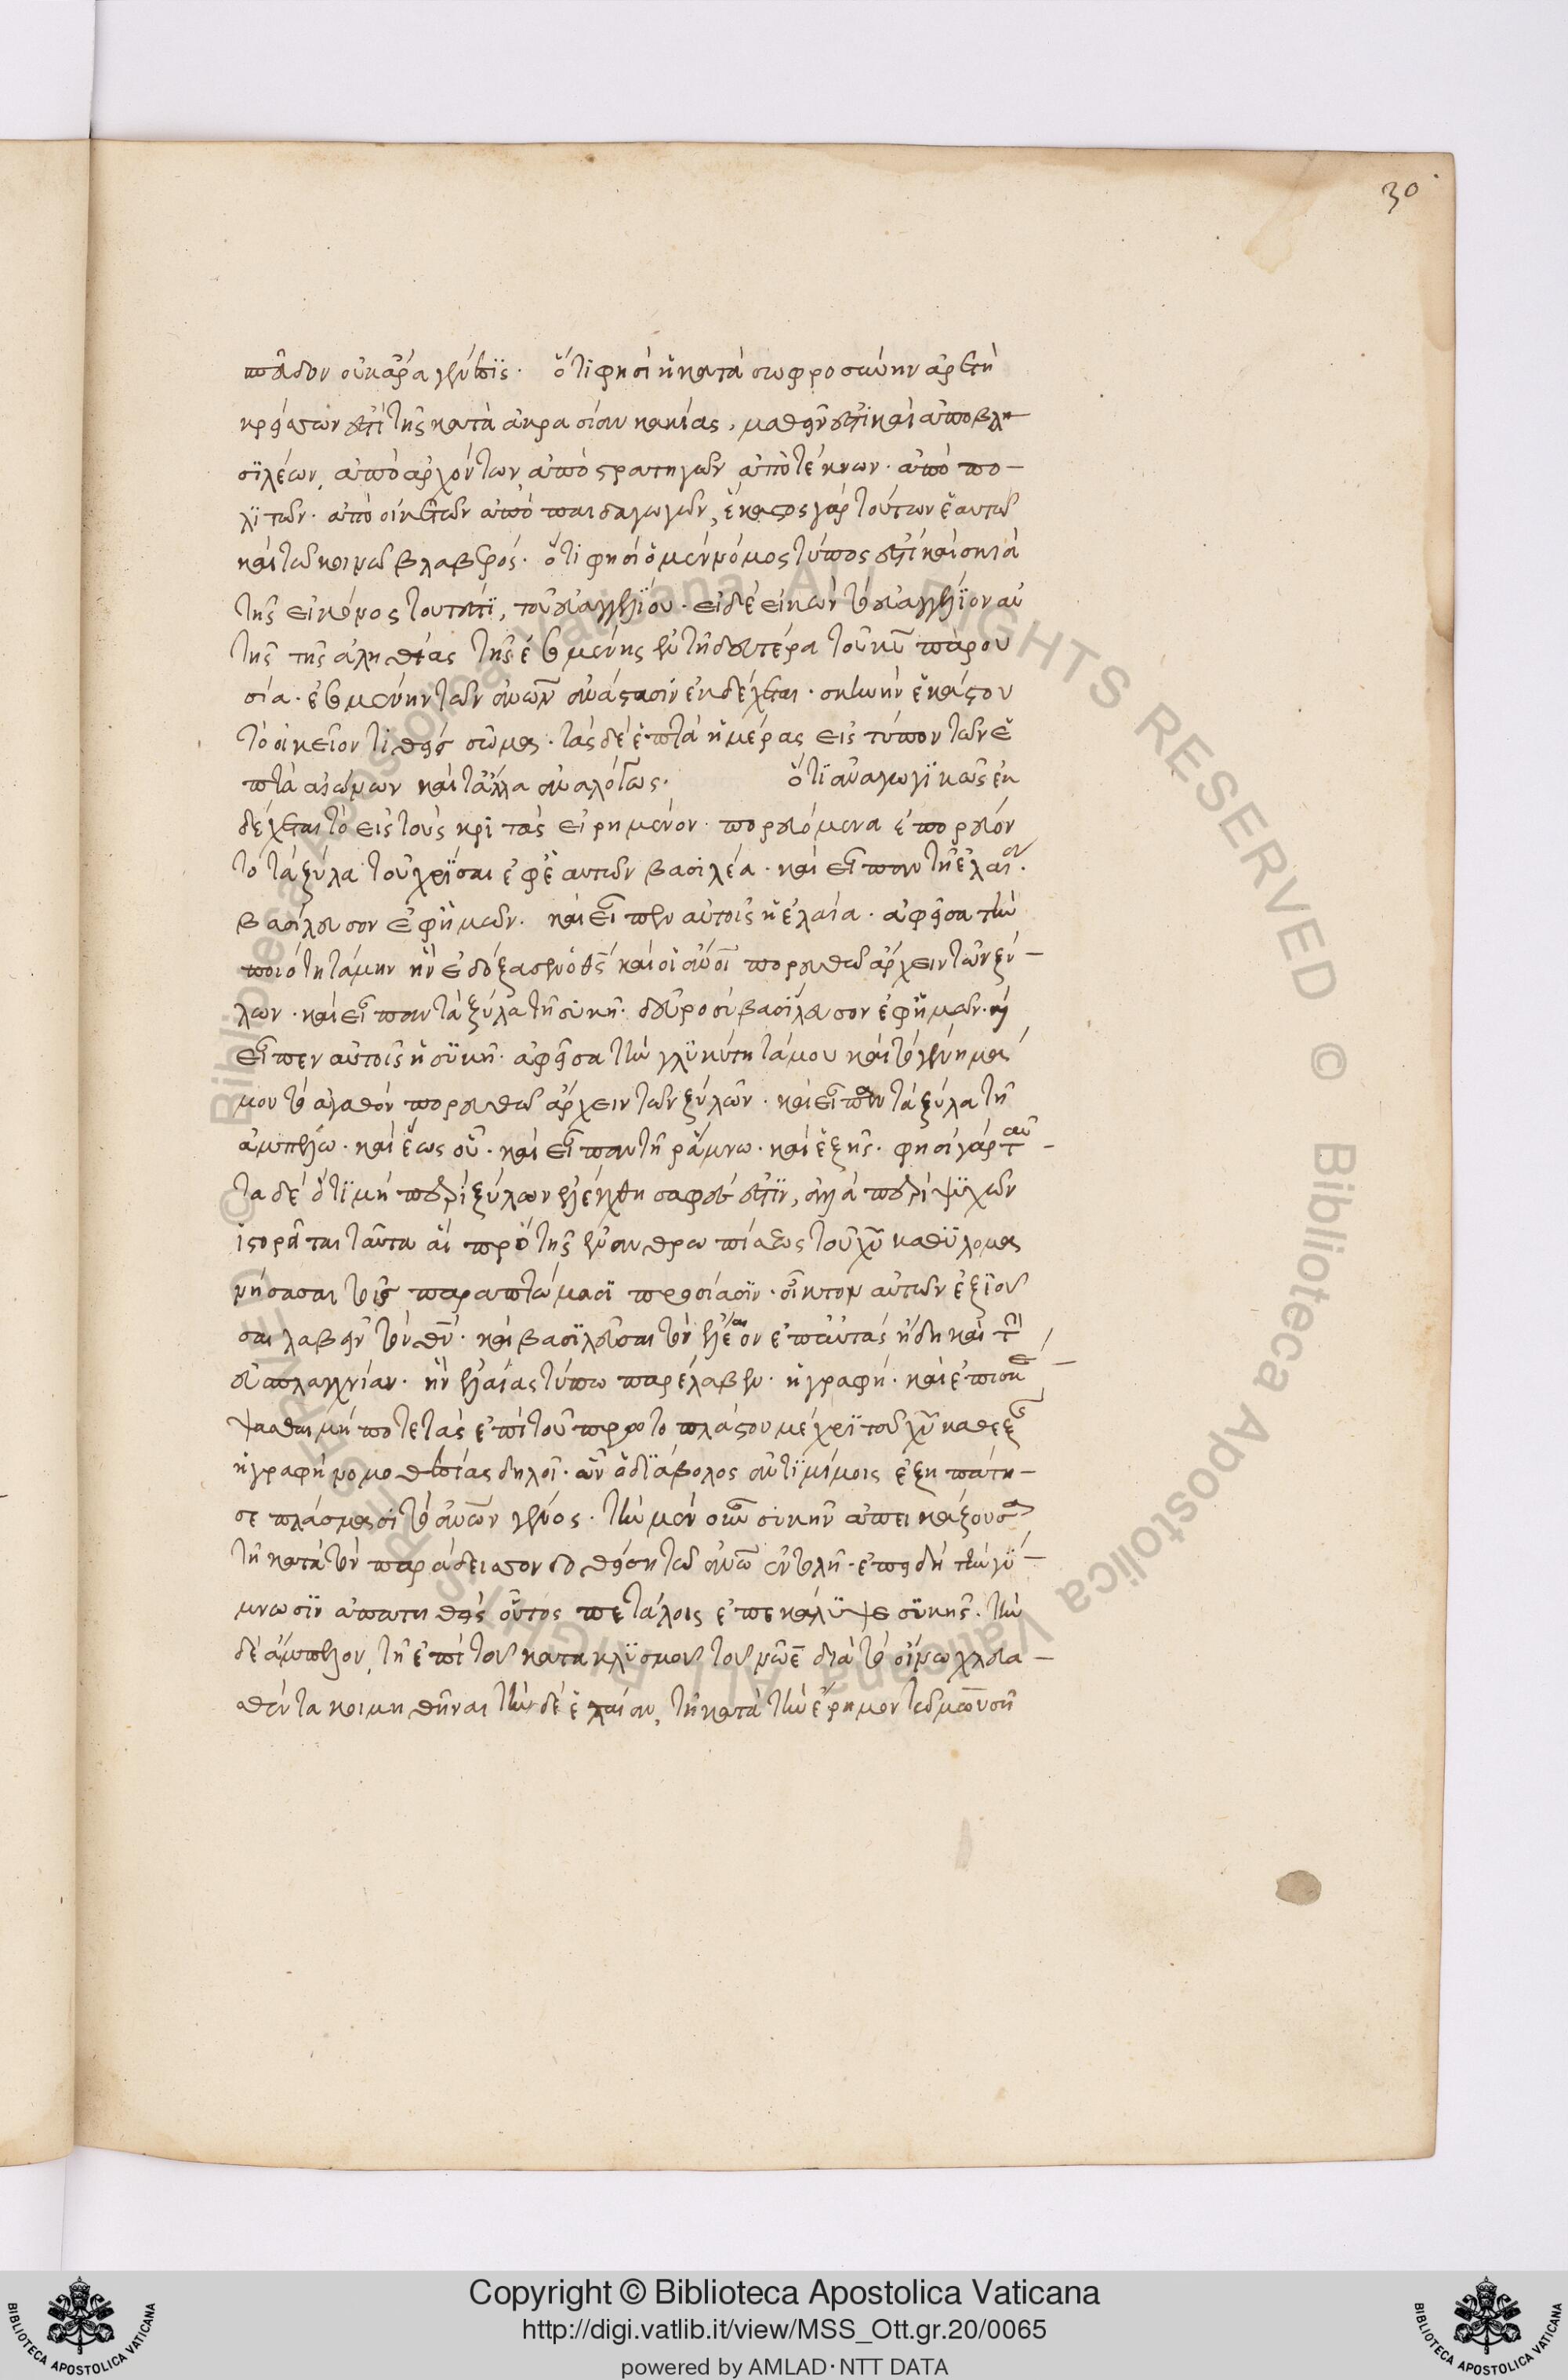 30
παῖδον οὐκ ἄρα γένεσις. ὅτι φησὶ ἡ κατὰ σωφροσύνην ἀρετὴ
κρείττων ἐστὶ τῆς κατὰ ἀκρασίαν κακίας, μαθεῖν ἐστι καὶ ἀπὸ
σϊλέων, ἀπὸ ἀρχόντων ἀπὸ στρατηγῶν ἀπὸ τέκνων. ἀπὸ πο-
λϊτῶν. ἀπὸ οἰκετῶν ἀπὸ παιδαγωγῶν, ἕκαστος γὰρ τούτων ἑαυτῶ
καὶ τῶ κοινῶ βλαβερός. ὅτι φησὶ ὁ μὲν νόμος τύπος ἐστὶ καὶ σκιὰ
τῆς εἰκόνος τουτέστϊ, τοῦ εὐαγγελϊου. εἰ δὲ εἰκὼν τὸ εὐαγγέλϊον αὐ
τῆς τῆς ἀληθείας τῆς ἐσομένης ἐν τῆ δευτέρα τοῦ κυ παρου
σία. ἐσομένην τῶν ἀνων ἀνάστασιν ἐκδέχεται. σκηνὴν ἑκάστου
τὸ οἰκεῖον τιθεὶς σῶμα. τὰς δὲ ἑπτὰ ἡμέρας εἰς τύπον τῶν ἑ
πτὰ αἰώνων καὶ τἄλλα ἀναλόγως. ὅτϊ ἀναγωγϊκῶς ἐκ
δέχεται τὸ εἰς τοὺς κριτὰς εἰρημένον. πορευόμενα ἐπορεύον
το τὰ ξύλα τοῦ χρῖσαι ἐφ' ἑαυτῶν βασιλέα. καὶ εἶπον τῆ ἐλαία.
βασίλευσον ἐφ' ἡμῶν. καὶ εἶπεν αὐτοῖς ἡ ἐλαία. ἀφεῖσα τὴν
ποιότητά μην ἣν ἐδόξασεν ὁ θς καὶ οἱ ἀνοι πορευθῶ ἄρχειν τῶν ξύ-
λων. καὶ εἶπον τὰ ξύλα τῆ συκῆ. δεῦρο σὺ βασίλευσον ἐφ' ἡμῶν. καὶ
εἶπεν αὐτοῖς ἡ συκῆ. ἀφεῖσα τὴν γλϋκύτητά μου καὶ τὸ γένημα
μου τὸ ἀγαθὸν πορευθῶ ἄρχειν τῶν ξύλων. καὶ εἶπον τὰ ξύλα τῆ
ἀμπέλω. καὶ ἕως οὗ. καὶ εἶπον τῆ ῥάμνω. καὶ ἑξῆς. φησὶ γὰρ ταῦ-
τα δὲ ὅτϊ μὴ περὶ ξύλων ἐλέχθη σαφές ἐστϊν, ἀλλὰ περὶ ψϋχῶν
ἱστορῆται ταῦτα αἳ πρὸ τῆς ἐνανθρωπίσεως τοῦ χυ καθϋλομα
νήσασαι τοῖς παραπτώμασϊ προσίασϊν. οἶκτον αὐτῶν ἐξϊοῦ
σαι λαβεῖν τὸν θν. καὶ βασϊλεῦσαι τὸν ἔλεον ἐπ' αὐτὰς ἤδη καὶ τὴν
εὐσπλαγχνίαν. ἣν ἐλαίας τύπω παρέλαβεν. ἡ γραφή. καὶ ἐπισκέ-
ψασθαι μή ποτε τὰς ἐπὶ τοῦ πρωτοπλάστου μέχρϊ τοῦ χυ καθεξῆς
ἡ γραφὴ νομοθεσίας δηλοῖ. ὧν ὁ δϊάβολος ἀντϊμίμοις ἐξηπάτη-
σε πλάσμασι τὸ ἀνων γένος. τὴν μὲν οὖν συκῆν ἀπεικάζουσα
τῆ κατὰ τὸν παράδεισον δοθείση τῶ ἀνω ἐντολῆ. ἐπειδὴ τὴν γϋ-
μνωσϊν ἀπατηθεὶς οὗτος πετάλοις ἐπεκάλϋψε σϋκῆς. τὴν
δὲ ἄμπελον, τῆ ἐπὶ τοῦ κατακλϋσμοῦ τοῦ νῶε διὰ τὸ οἴνω χλευα-
σθέντα κοιμηθῆναι τὴν δὲ ἐλαίαν, τῆ κατὰ τὴν ἔρημον τῶ μωυσῆ
Copyright © Biblioteca Apostolica Vaticana
http://digi.vatlib.it/view/MSS_Ott.gr.20/0065
powered by AMLAD·NTT DATA